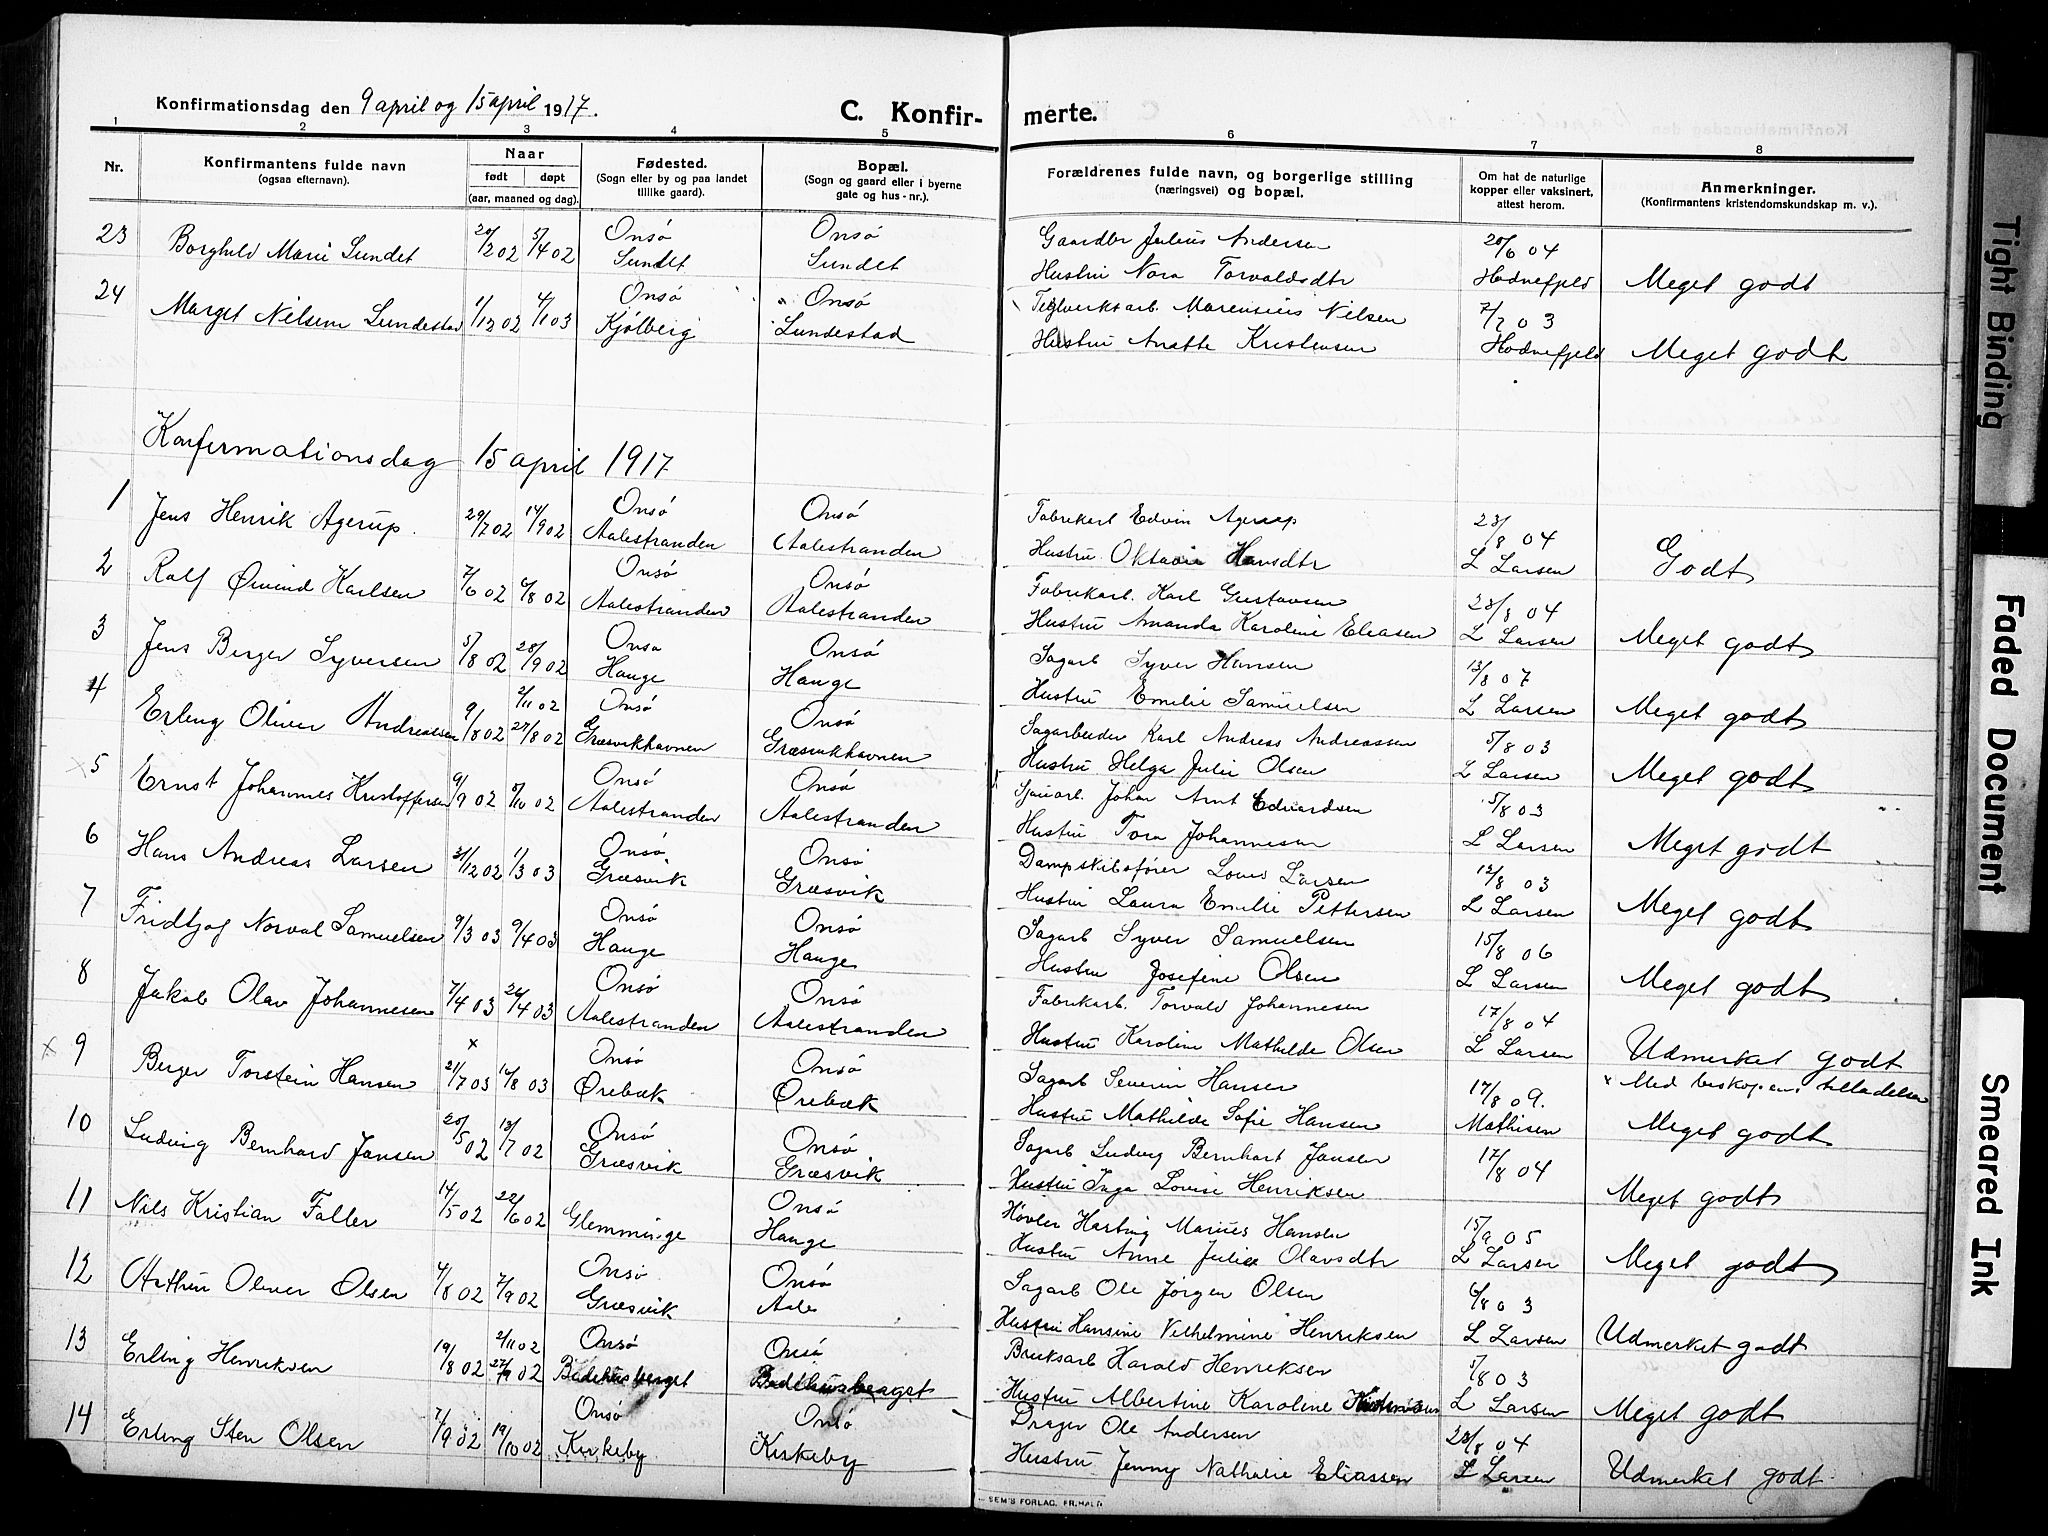 Konfirmationsdag den 9 april og 15 april 1917.
C. Konfir-
merte.
1 2 3 4 5 6 7 8
Nr.
Konfirmantens fulde navn
(ogsaa efternavn).
Naar
født døpt
(aar, maaned og dag).
Fødested.
(Sogn eller by og paa landet
tillike gaard).
Bopæl.
(Sogn og gaard eller i byerne
gate og hus-nr.).
Forældrenes fulde navn, og borgerlige stilling
(næringsvei) og bopæl.
Om hat de naturlige
kopper eller vaksinert,
attest herom.
Anmerkninger.
(Konfirmantens kristendomskundskap m. v.).
23 Borghild Marie Sundet 20/2 02 5/4 02 Onsø Onsø Gaardbr Julius Andersen 20/6 04
Sundet Sundet Hustru Nora Torvaldsdtr Hodnefjeld Meget godt
24 Marget Nilsen Lundestad 1/12 02 4/1 03 Onsø Onsø Teglverksarb. Marensius Nilsen 7/7 03
Kjølberg Lundestad Hustru Anette Kristensen Hodnefjeld Meget godt
Konfirmationsdag 15 april 1917
1 Jens Henrik Agerup. 29/7 02 14/9 02 Onsø Onsø Fabrikarb Edvin Agerup 23/8 04
Aalestranden Aalestranden Hustru Oktavie Hansdtr L Larsen Godt
2 Ralf Øivind Karlsen 7/6 02 6/8 02 Onsø Onsø Fabrikarb. Karl Gustavsen 23/8 04
Aalestranden Aalestranden Hustru Amanda Karoline Eliasen L Larsen Meget godt
3 Jens Berger Syversen 5/8 02 28/9 02 Onsø Onsø Sagarb Syver Hansen 13/8 07
Hauge Hauge Hustru Emilie Samuelsen L Larsen Meget godt
4 Erling Oliver Andreassen 9/8 02 2/11 02 27/8 02 Onsø Onsø Sagarbeider Karl Andreas Andreassen 5/8 03
Græsvikhavnen Græsvikhavnen Hustru Helga Julie Olsen L Larsen Meget godt
× 5 Ernst Johannes Kristoffersen 9/9 02 5/10 02 Onsø Onsø Sjauarb. Johan Arnt Edvardsen 5/8 03
Aalestranden Aalestranden Hustru Tora Johannesen L Larsen Meget godt
6 Hans Andreas Larsen 31/12 02 1/3 03 Onsø Onsø Dampskibsfører Louis Larsen 12/8 03
Græsvik Græsvik Hustru Laura Emilie Pettersen L Larsen Meget godt
7 Fridtjof Norval Samuelsen 9/3 03 9/4 03 Onsø Onsø Sagarb Syver Samuelsen 15/8 06
Hauge Hauge Hustru Josefine Olsen L Larsen Meget godt
8 Jakob Olav Johannesen 7/4 03 26/4 03 Onsø Onsø Fabrikarb. Torvald Johannesen 17/8 04
Aalestranden Aalestranden Hustru Karoline Mathilde Olsen L Larsen Udmerket godt
× 9 Berger Torstein Hansen × 21/7 03 16/8 03 Onsø Onsø Sagarb Severin Hansen 17/8 09. × Med biskopens tilladelse
Ørebæk Ørebæk Hustru Mathilde Sofie Hansen Mathisen Meget godt
10 Ludvig Bernhard Jansen 20/5 02 13/7 02 Onsø Onsø Sagarb Ludvig Bernhart Jansen 17/8 04
Græsvik Græsvik Hustru Inga Lovise Henriksen Meget godt
11 Nils Kristian Faller 14/5 02 22/6 02 Glemminge Onsø Høvler Hartvig Marius Hansen 15/9 05
Hauge Hustru Anne Julie Olavsdtr L Larsen Meget godt
12 Arthur Oliver Olsen 4/8 02 7/9 02 Onsø Onsø Sagarb Ole Jørgen Olsen 6/8 03
Græsvik Aale Hustru Hansine Vilhelmine Henriksen L Larsen Udmerket godt
13 Erling Henriksen 19/8 02 2/11 02 Onsø Onsø Bruksarb Harald Henriksen 5/8 03
Hustru Albertine Karoline L Larsen Meget godt
14 Erling Sten Olsen 7/9 02 19/10 02 Onsø Onsø Drager Ole Andersen 23/8 04
Kirkeby Kirkeby Hustru Jenny Nathalie Eliassen L Larsen Udmerket godt.
SEM'S FORLAG, FR.HALD
Tight Binding
Faded Document
Smeared Ink